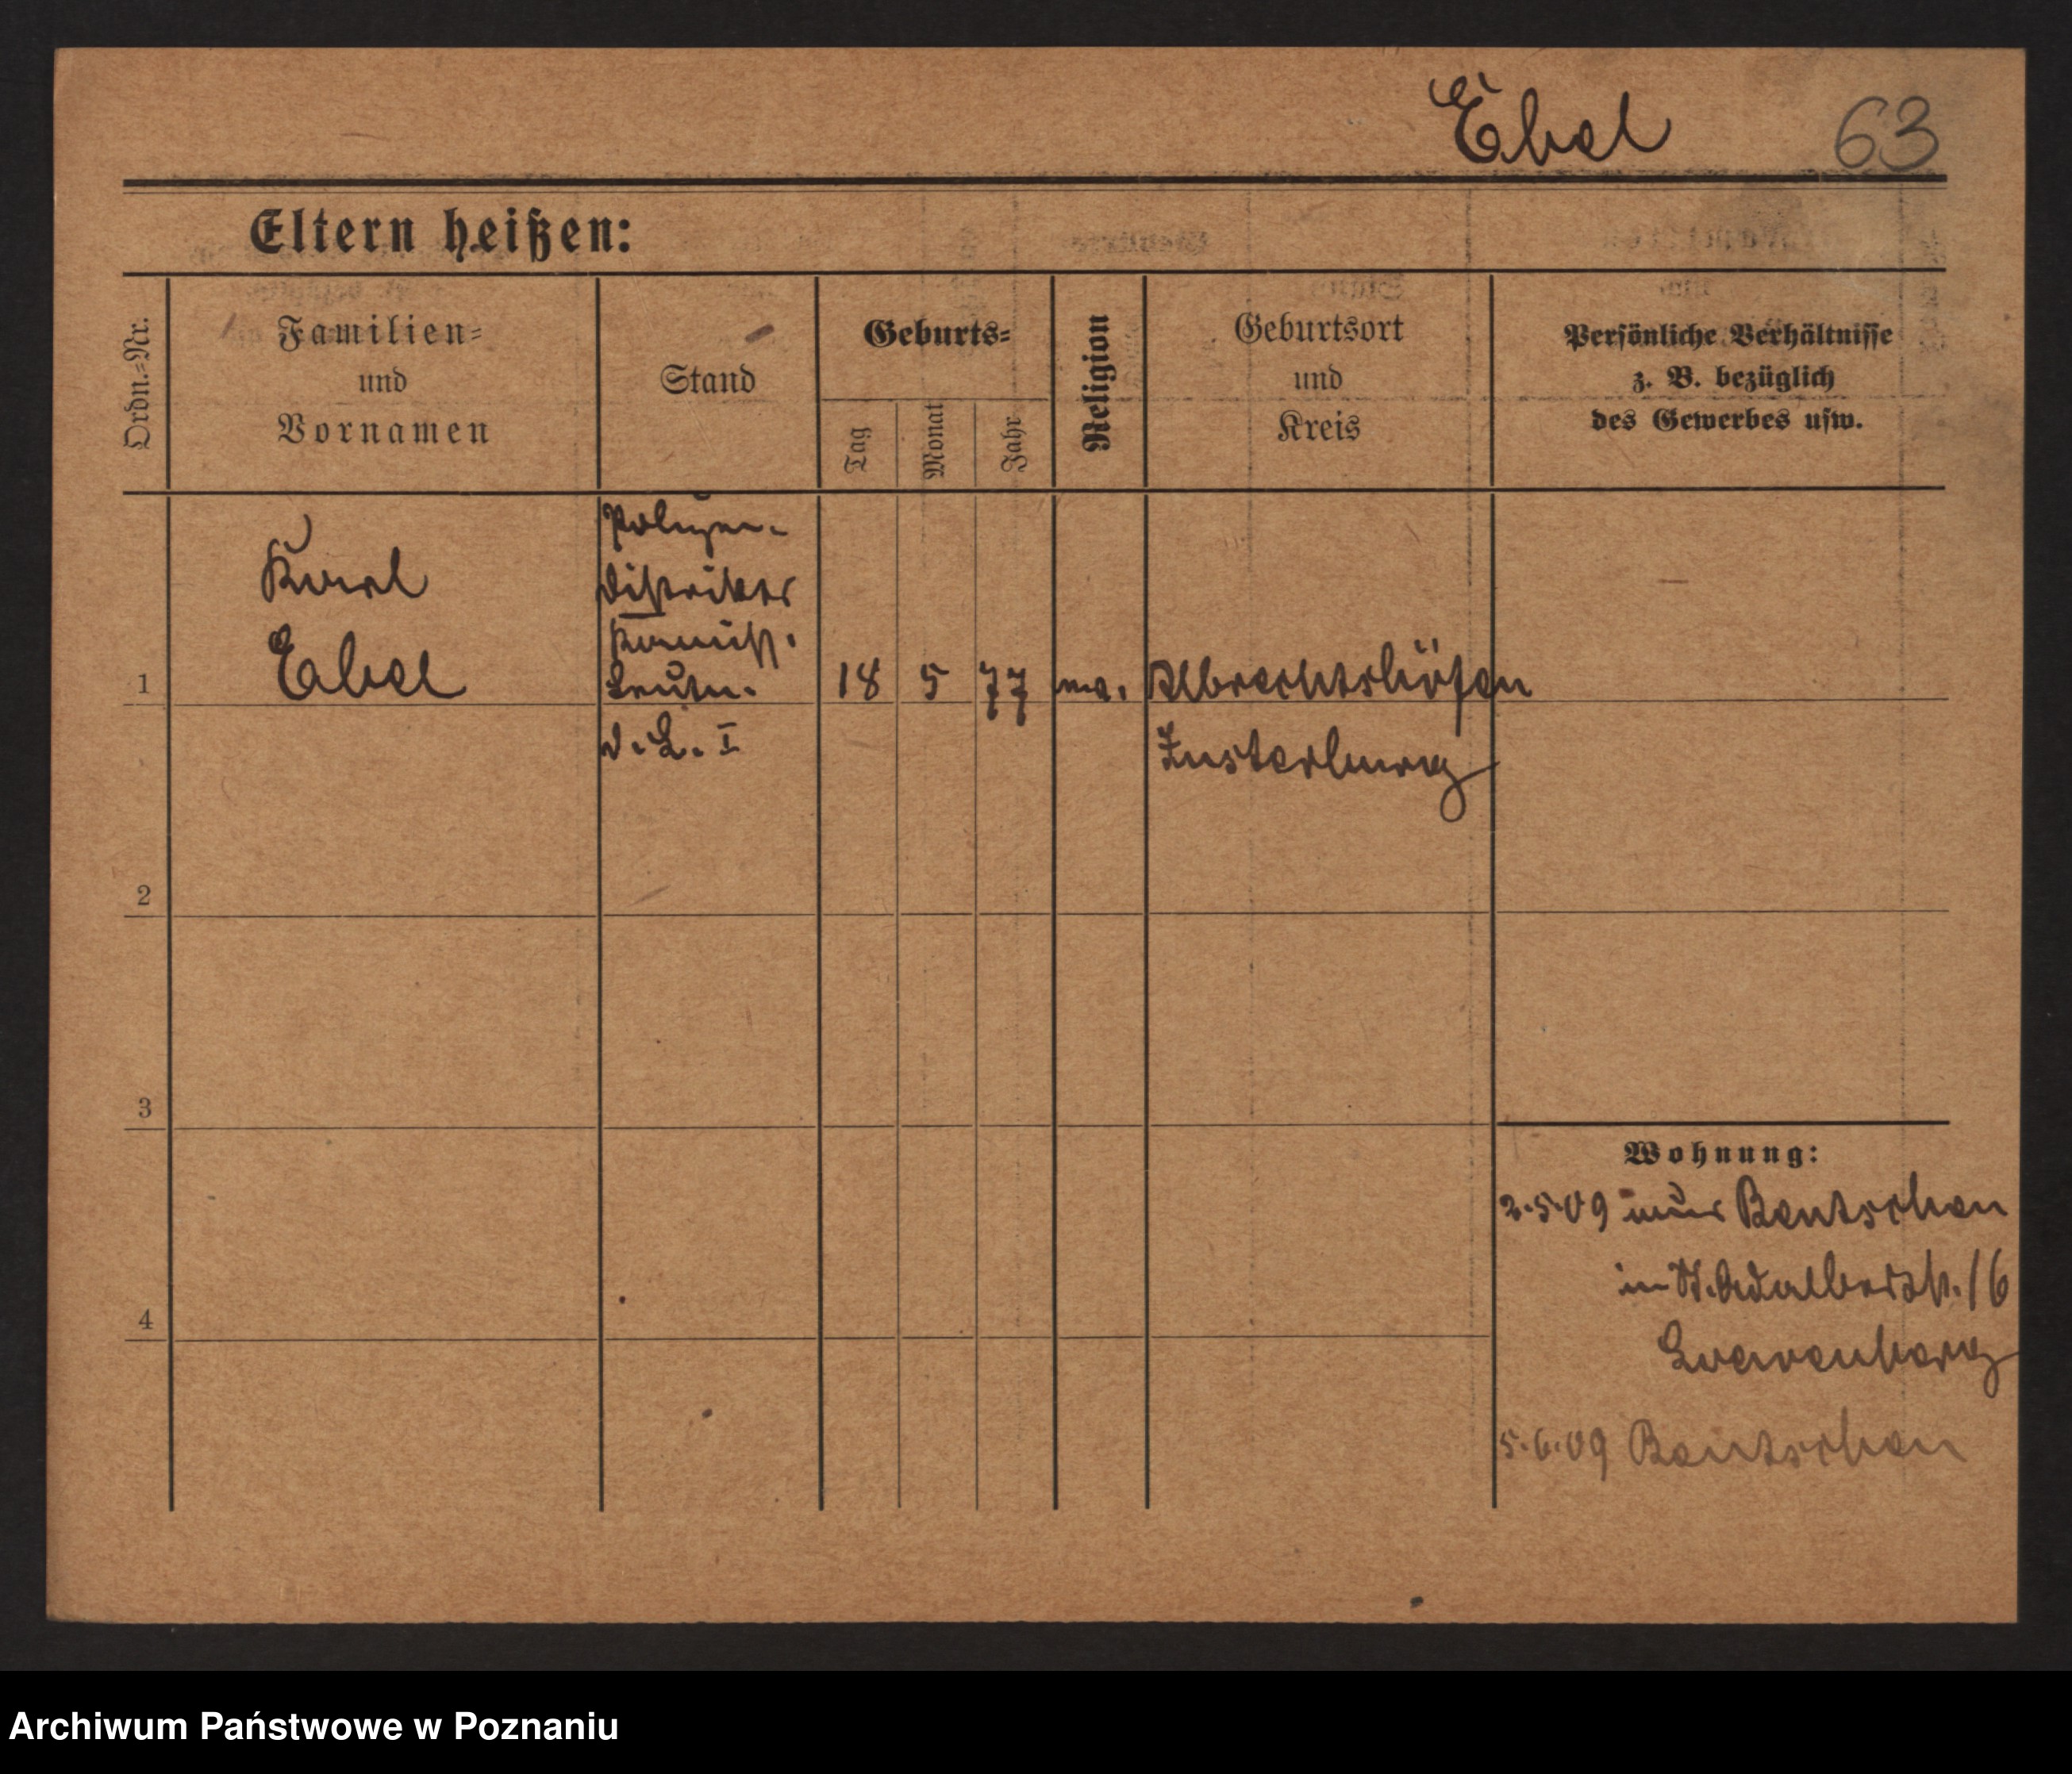 Ebel 63
Eltern heißen:
Ordn.=Nr.
Familien=
und
Vornamen
Stand
Geburts=
Tag
Monat
Jahr
Religion
Geburtsort
und
Kreis
Persönliche Verhältnisse
z. B. bezüglich
des Gewerbes usw.
Karl
Ebel
Polizei-
Distrikts
Kommiss.
Leutn.
d. L. I
1 18 5 77 ev. Albrechtshöfen
Insterburg
2
3
4
Wohnung:
2.5.09 aus Bentschen
in St. Adalbertstr. 16
Loewenberg
5.6.09 Bentschen
Archiwum Państwowe w Poznaniu